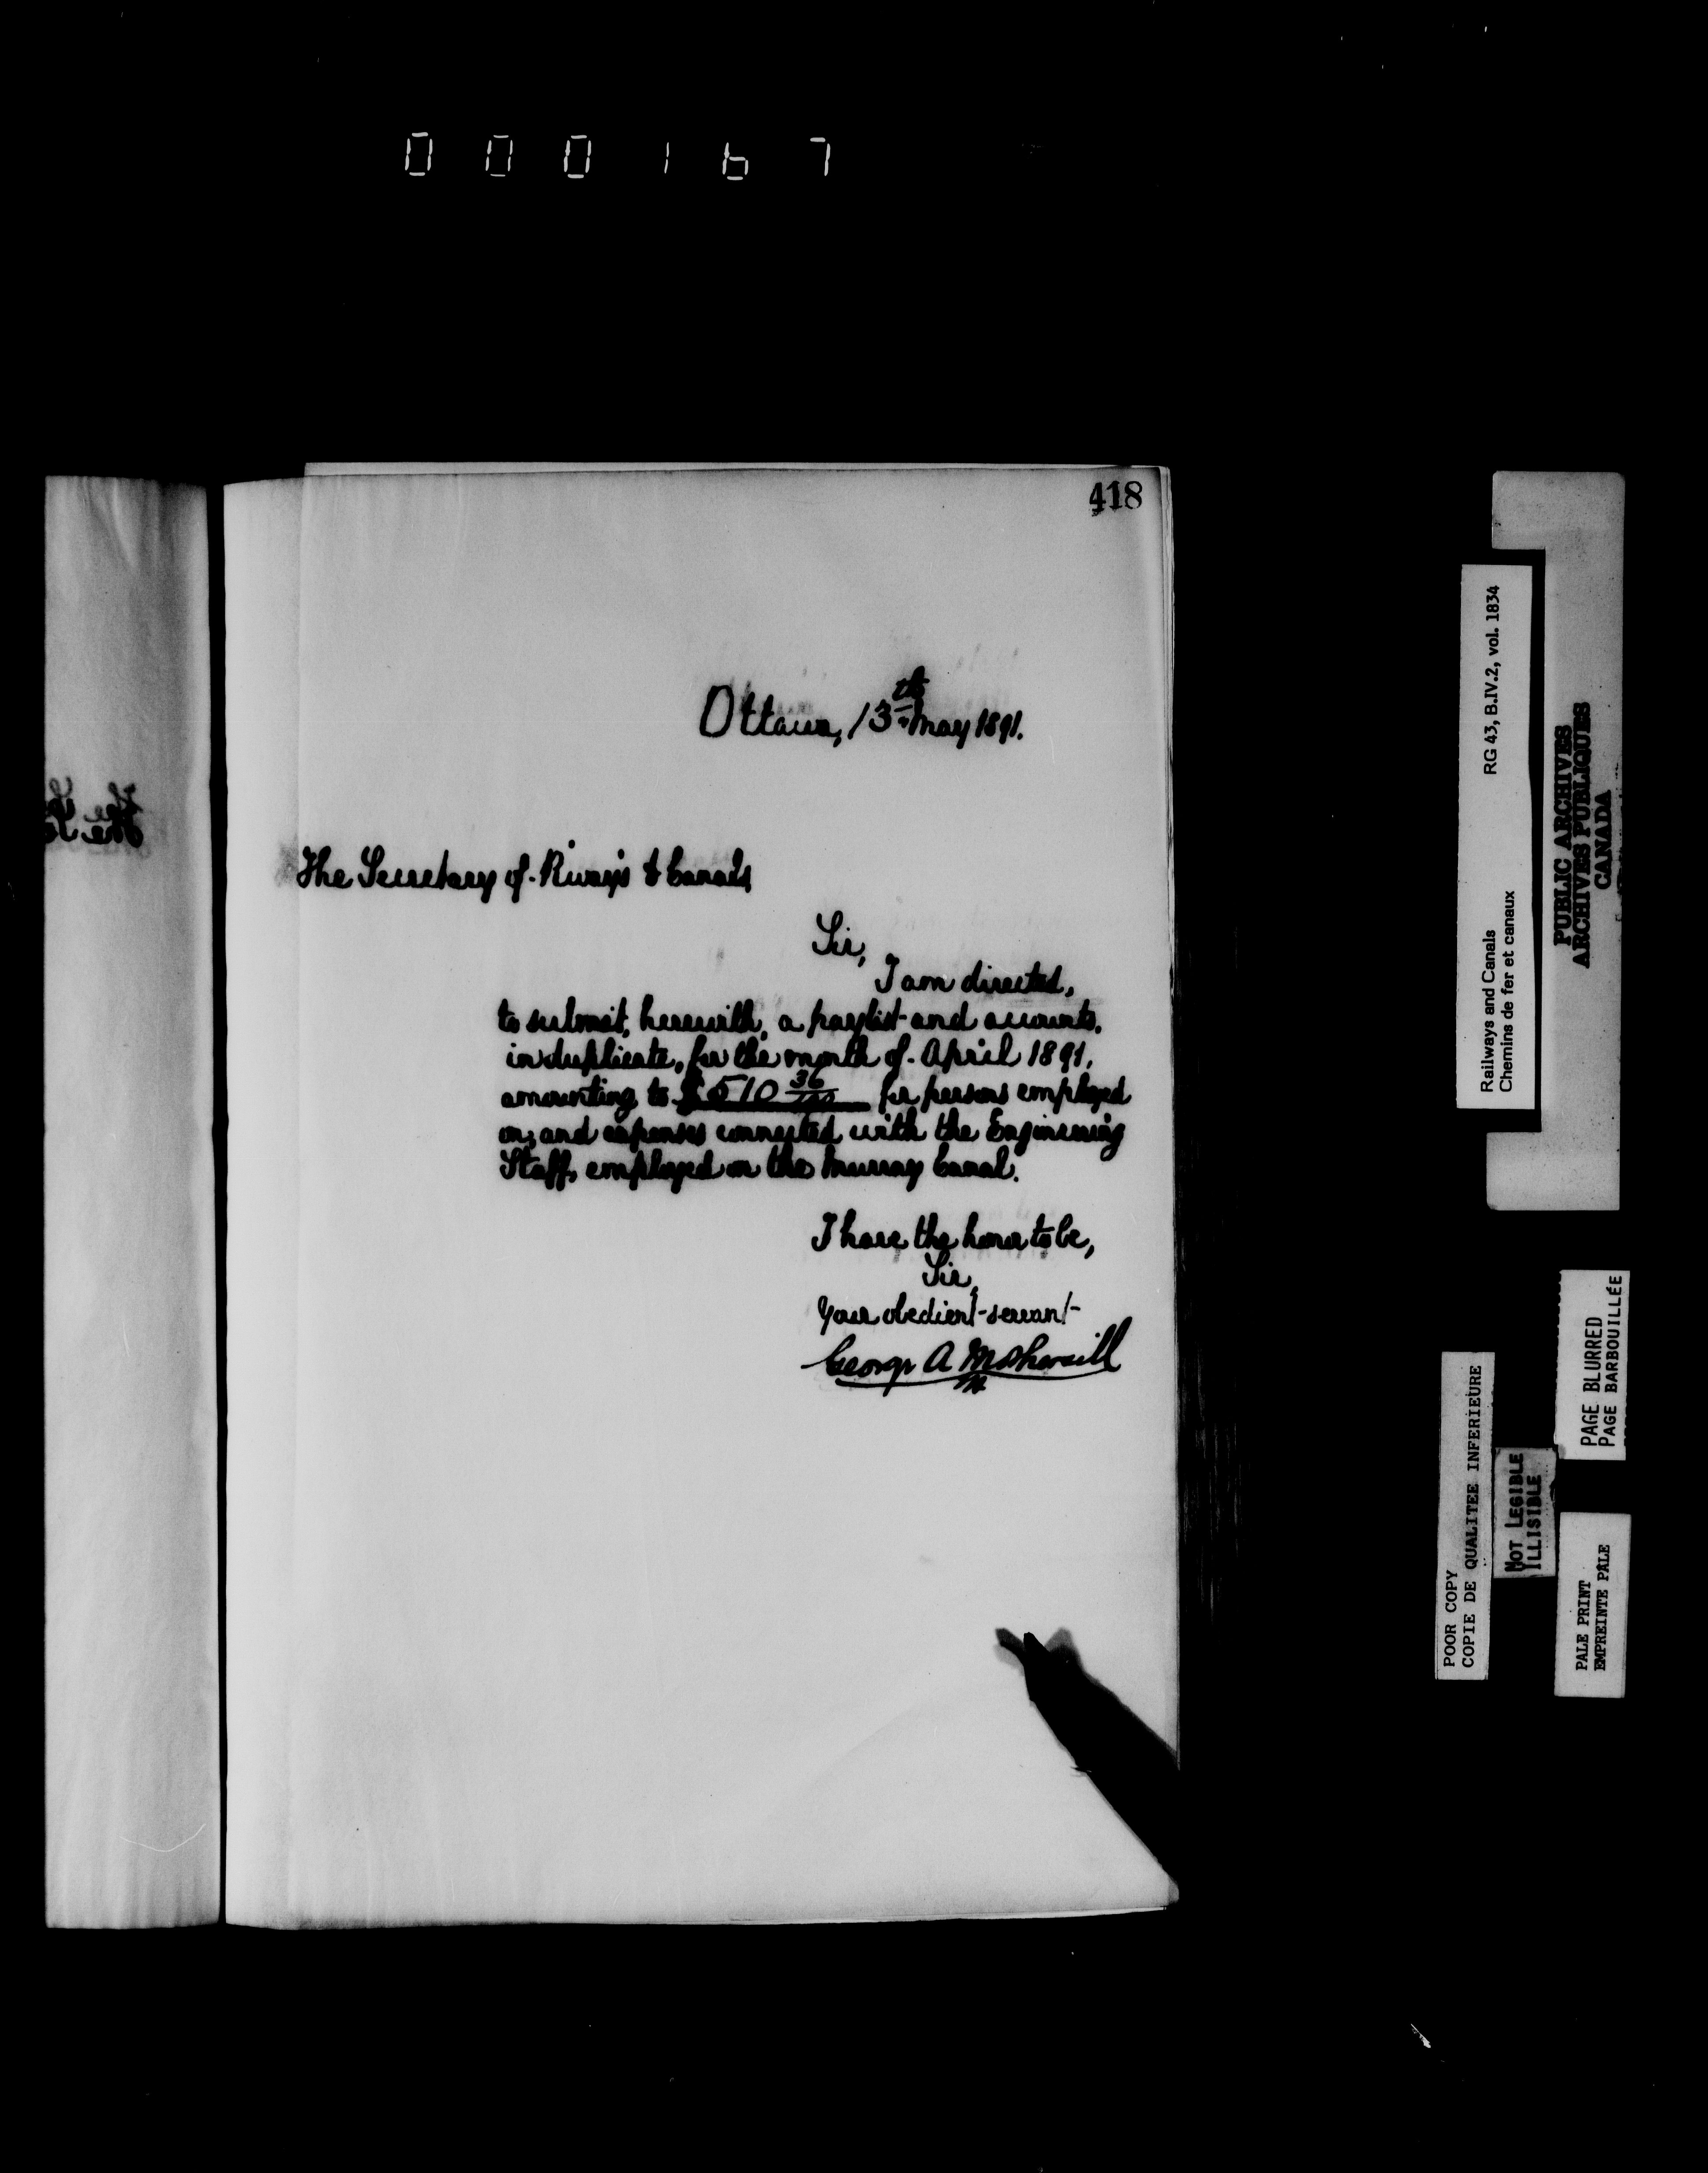 000167
418
Ottawa, 13th May 1891.
The Secretary of Rways & Canals
Sir,
I am directed,
to submit, herewith, a paylist and accounts,
in duplicate, for the month of April 1891,
amounting to $510 36/100 for persons employed
on, and expenses connected with the Engineering
Staff, employed on the Murray Canal.
I have the honor to be,
Sir,
Your obedient servant
George A Mothersill
Railways and Canals RG 43, B.IV.2, vol. 1834
Chemins de fer et canaux
PUBLIC ARCHIVES
ARCHIVES PUBLIQUES
CANADA
POOR COPY
COPIE DE QUALITEE INFERIEURE
NOT LEGIBLE
ILLISIBLE
PAGE BLURRED
PAGE BARBOUILLÉE
PALE PRINT
EMPREINTE PÂLE